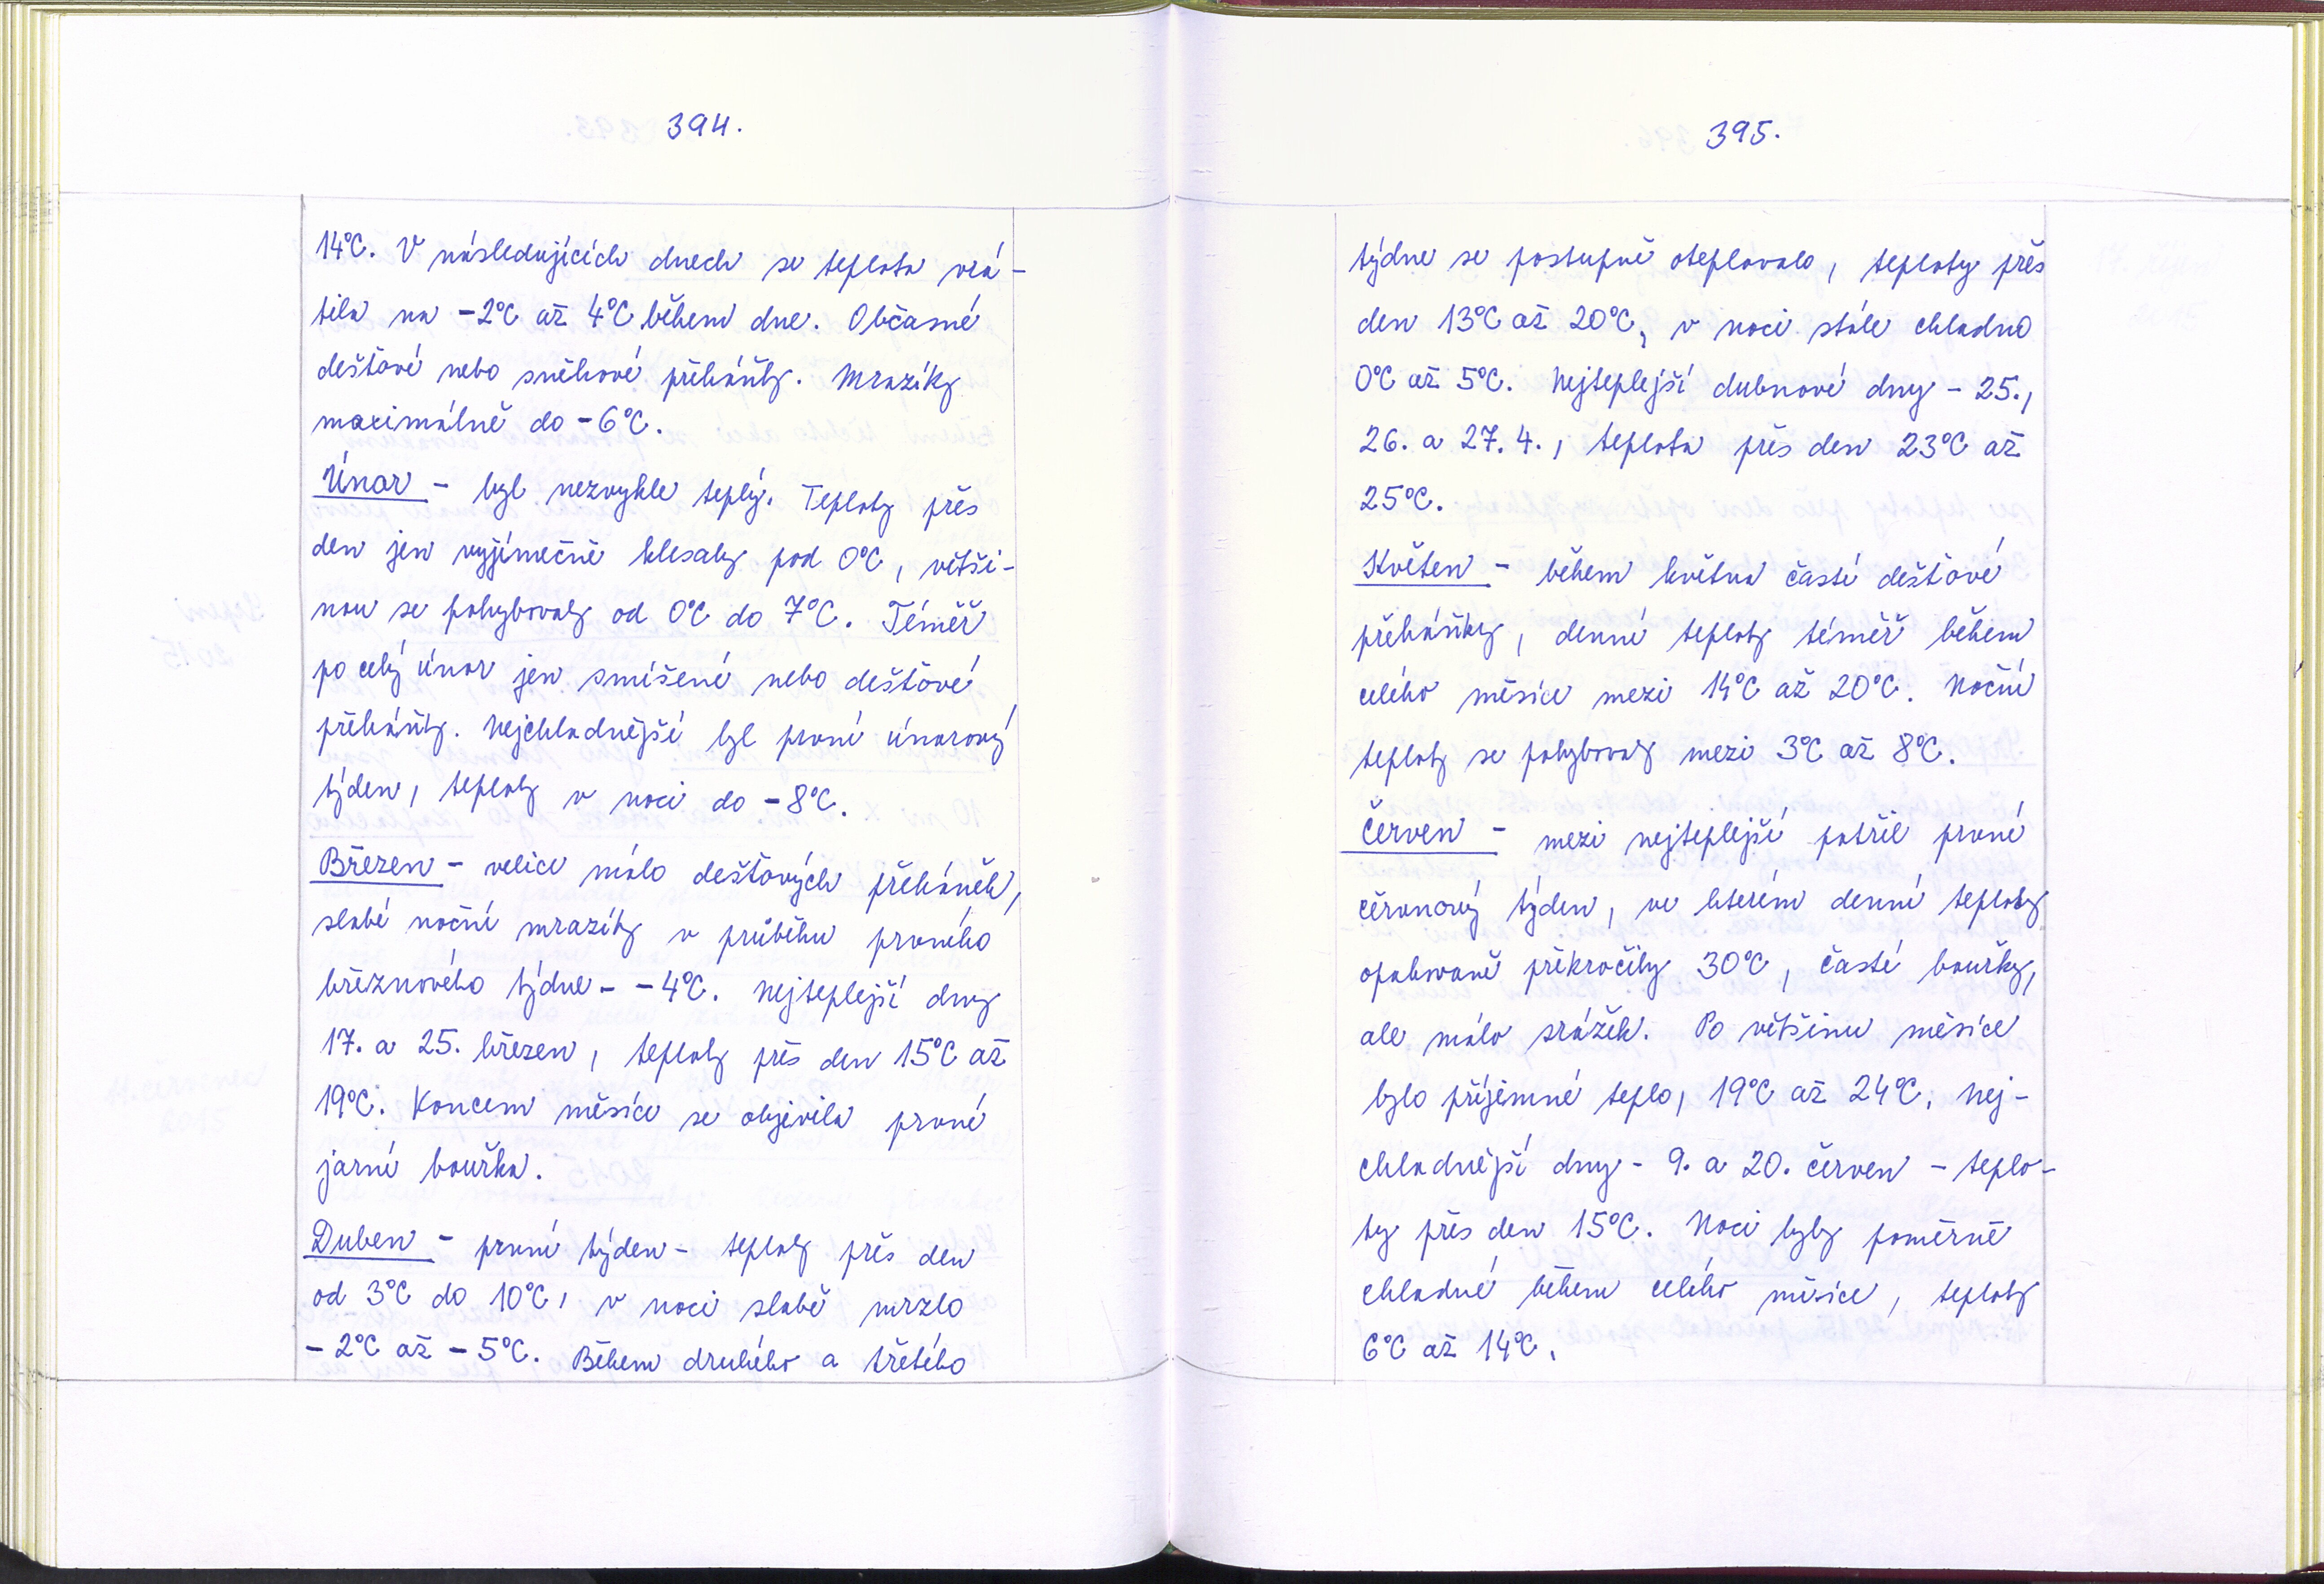 394.
14°C. V následujících dnech se teplota vrá-
tila na -2°C až 4°C během dne. Občasné
dešťové nebo sněhové přeháňky. Mrazíky
maximálně do -6°C.
Únor - byl nezvykle teplý. Teploty přes
den jen vyjímečně klesaly pod 0°C, větši-
nou se pohybovaly od 0°C do 7°C. Téměř
po celý únor jen smíšené nebo dešťové
přeháňky. Nejchladnější byl první únorový
týden, teploty v noci do -8°C.
Březen - velice málo dešťových přeháněk,
slabé noční mrazíky v průběhu prvního
březnového týdne - -4°C. Nejteplejší dny
17. a 25. březen, teploty přes den 15°C až
19°C. Koncem měsíce se objevila první
jarní bouřka.
Duben - první týden - teploty přes den
od 3°C do 10°C, v noci slabě mrzlo
-2°C až -5°C. Během druhého a třetího
395.
týdne se postupně oteplovalo, teploty přes
den 13°C až 20°C, v noci stále chladno
0°C až 5°C. Nejteplejší dubnové dny - 25.,
26. a 27. 4., teplota přes den 23°C až
25°C.
Květen - během května časté dešťové
přeháňky, denní teploty téměř během
celého měsíce mezi 14°C až 20°C. Noční
teploty se pohybovaly mezi 3°C až 8°C.
Červen - mezi nejteplejší patřil první
červnový týden, ve kterém denní teploty
opakovaně překročily 30°C, časté bouřky,
ale málo srážek. Po většinu měsíce
bylo příjemné teplo, 19°C až 24°C. Nej-
chladnější dny - 9. a 20. červen - teplo-
ty přes den 15°C. Noci byly poměrně
chladné během celého měsíce, teploty
6°C až 14°C.